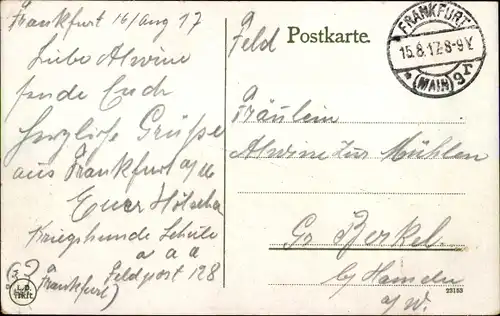 Frankfurt 16/Aug 17
Liebe Alwine
sende Euch
herzliche Grüße
aus Frankfurt a/M
Euer Hölscher
Kriegshunde Schule
a a a
Feldpost 128
Frankfurt)
Feld
Postkarte.
FRANKFURT
15.8.17.8-9V.
* (MAIN) 9r
Fräulein
Alwine zur Mühlen
Gr Berkel.
by Hameln
a/W.
23153